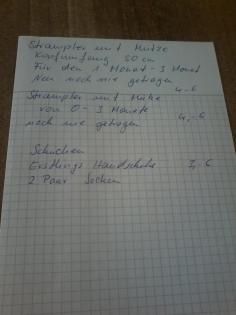 Strampler mit Mütze
Kopfumfang 50 cm
Für den 1 Monat - 3 Monat
Neu noch nie getragen
4,-€
Strampler mit Mütze
von 0 - 3 Monate
noch nie getragen 4,-€
Schuhchen
Erstlings Handschuhe 3,-€
2 Paar Socken